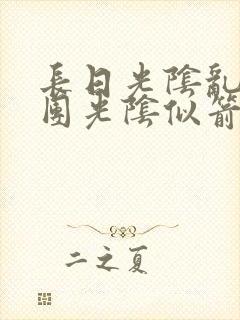 長日光陰亂
團光陰似箭
二之夏